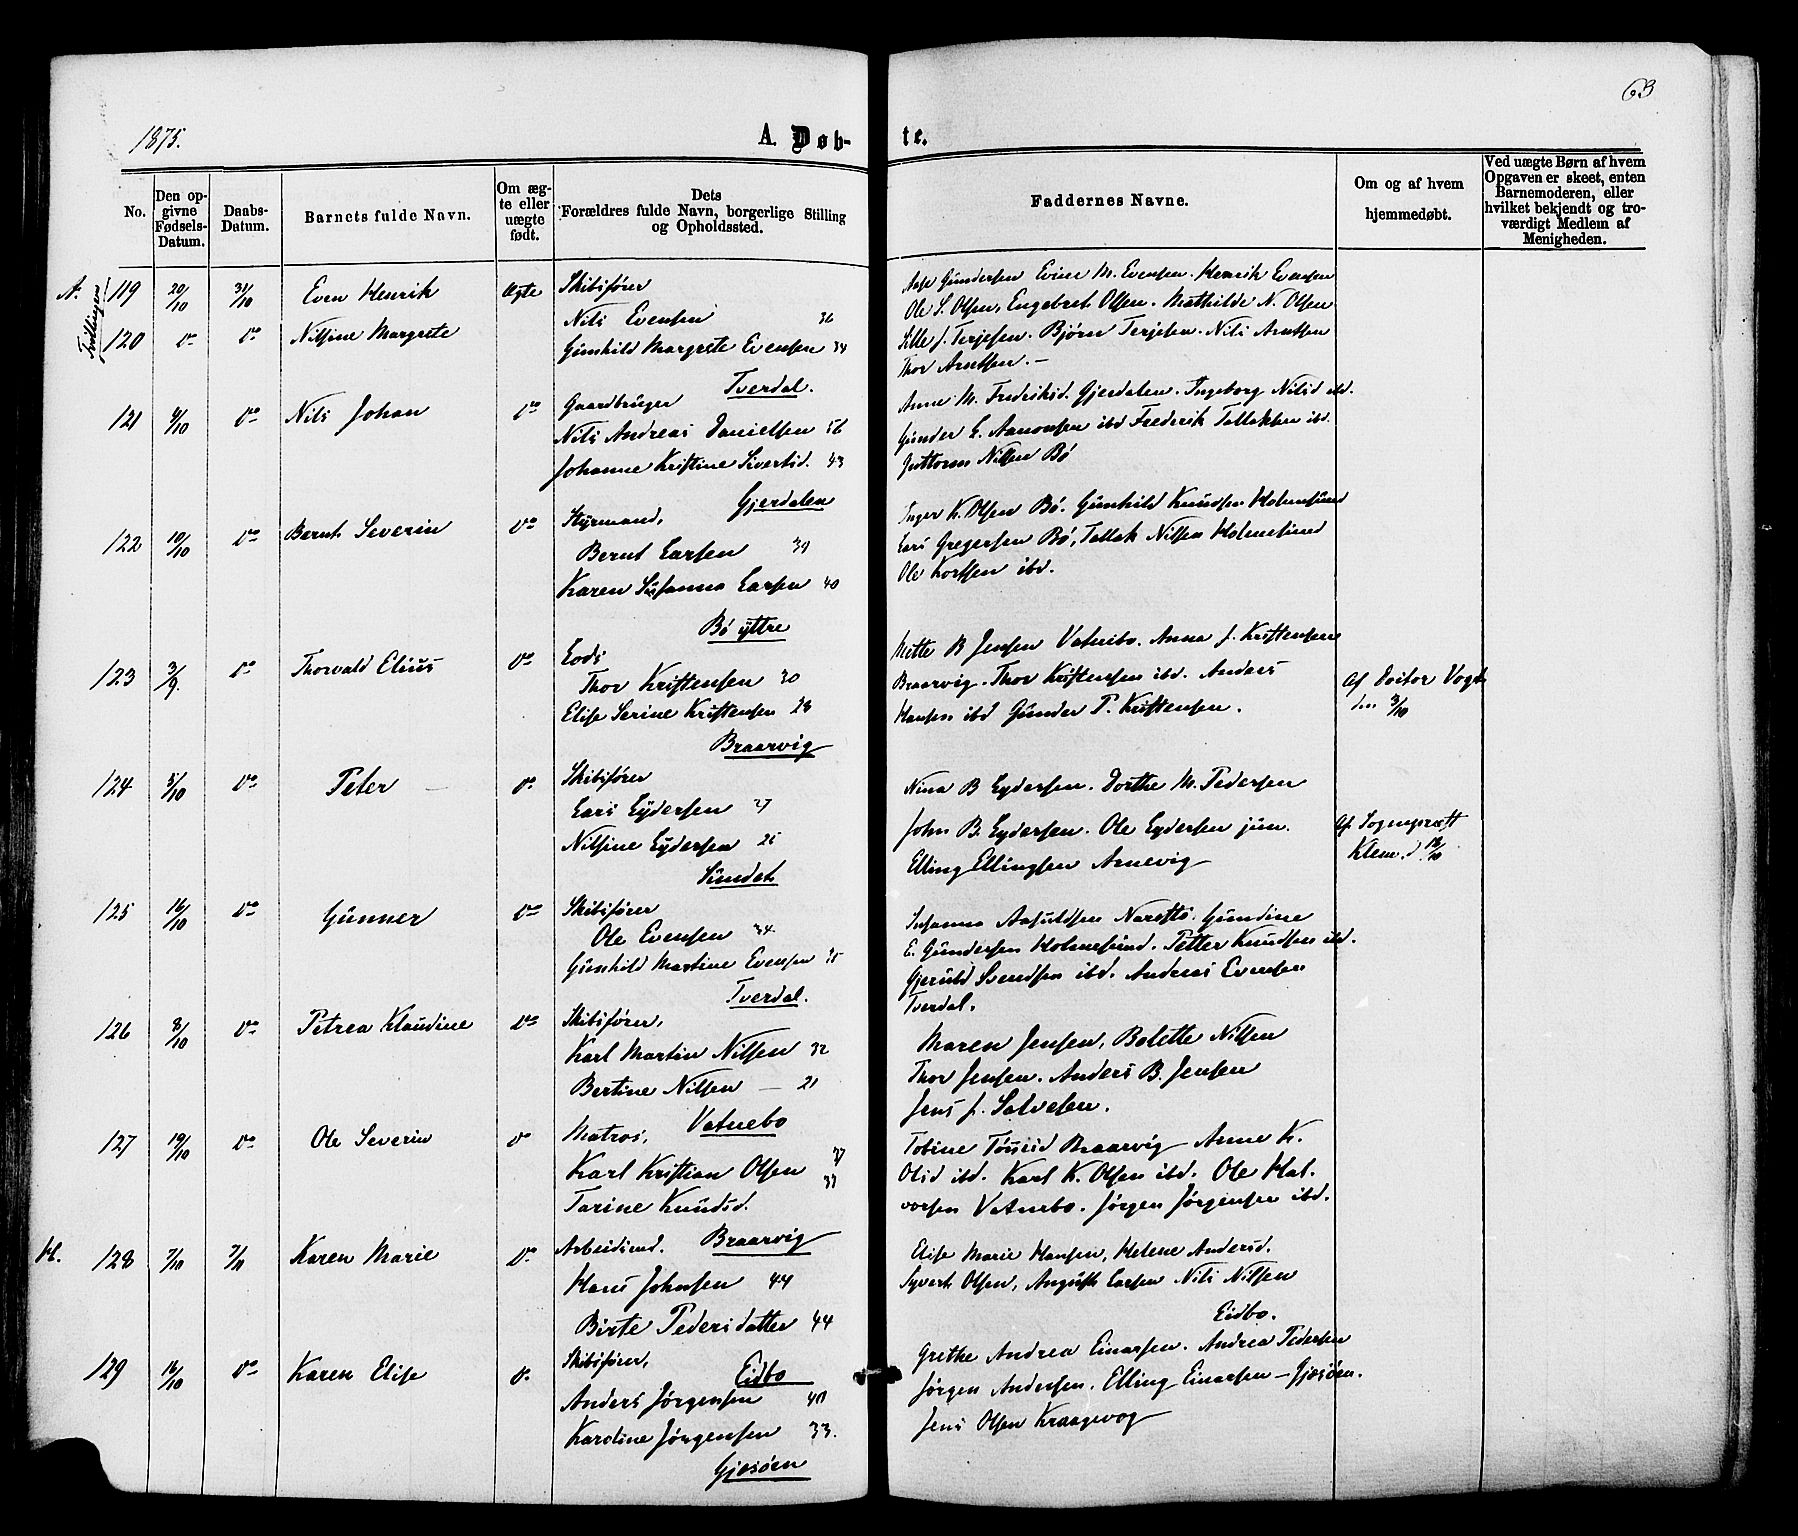 63
1875.
A. Døb-
te.
No.
Den op-
givne
Fødsels-
Datum.
Daabs-
Datum.
Barnets fulde Navn.
Om æg-
te eller
uægte
født.
Dets
Forældres fulde Navn, borgerlige Stilling
og Opholdssted.
Faddernes Navne.
Om og af hvem
hjemmedøbt.
Ved uægte Børn af hvem
Opgaven er skeet, enten
Barnemoderen, eller
hvilket bekjendt og tro-
værdigt Medlem af
Menigheden.
A. Tvillinger
119 20/10 31/10 Even Henrik Ægte Skibsfører
Nils Evensen 36
Aase Gundersen Evine M. Evensen. Henrik Evensen
Ole S. Olsen, Engebret Olsen. Mathilde N. Olsen
120 do do Nilsine Margrete
Gunhild Margrete Evensen 34
Tverdal.
Sille J. Terjesen. Bjørn Terjesen. Nils Arntsen
Thor Arntsen. –
121 4/10 do Nils Johan do Gaardbruger
Nils Andreas Danielsen 56
Johanne Kristine Sivertsd. 43
Gjerdalen
Anne M. Frederiksd. Gjerdalen. Ingeborg Nilsd ibd.
Gunder E. Aanonsen ibd Frederik Tallaksen ibd.
Guttorm Nilsen Bø
122 10/10 do Bernt Severin do Styrmand,
Bernt Larsen 39
Karen Susanna Larsen 40
Bø yttre
Inger K. Olsen Bø. Gunhild Knudsen Holmesund
Lars Gregersen Bø, Tallak Nilsen Holmesund
Ole Korssen ibd.
123 3/9. do Thorvald Elius do Lods
Thor Kristensen 30
Elise Serine Kristensen 28
Braarvig
Mette B Jensen Vatnebo. Anna J. Kristensen
Braarvig. Thor Kristensen ibd. Anders
Hansen ibd Gunder P. Kristensen.
Af Doktor Vogt
den 3/10
124 5/10 do Peter – do Skibsfører
Lars Eydersen 27
Nilsine Eydersen 25
Sundet
Nina B Eydersen. Dorthe M. Pedersen
John B. Eydersen. Ole Eydersen jun.
Elling Ellingsen Arnevig
Af Sogneprest
Klem. d. 12/10
125 16/10 do Gunner do Skibsfører
Ole Evensen 34
Gunhild Martine Evensen 35
Tverdal.
Susanna Aasuldsen Narestø. Gundine
E. Gundersen Holmesund. Petter Knudsen ibd.
Gjeruld Svendsen ibd. Andreas Evensen
Tverdal.
126 8/10 do Petrea Klaudine do Skibsfører,
Karl Martin Nilsen 32
Bertine Nilsen – 21
Vatnebo
Maren Jensen, Bolette Nilsen
Thor Jensen. Anders B. Jensen
Jens J. Salvesen.
127 19/10 do Ole Severin do Matros,
Karl Kristian Olsen 37
Tarine Knudsd. 33
Braarvig
Tobine Braarvig Anne K.
Olsd ibd. Karl K. Olsen ibd. Ole Hal-
vorsen Vatnebo. Jørgen Jørgensen ibd.
H. 128 7/10 7/11 Karen Marie do Arbeidsmd.
Hans Johnsen 44
Birte Pedersdatter 44
Eidbo
Elise Marie Hansen, Helene Andersd.
Syvert Olsen, August Larsen Nils Nilsen
Eidbo.
129 16/10 do Karen Elise do Skibsfører,
Anders Jørgensen 40
Karoline Jørgensen 33.
Gjesøen
Grethe Andrea Einarsen. Andrea Pedersen
Jørgen Andersen. Elling Einarsen – Gjesøen.
Jens Olsen Kraagevog